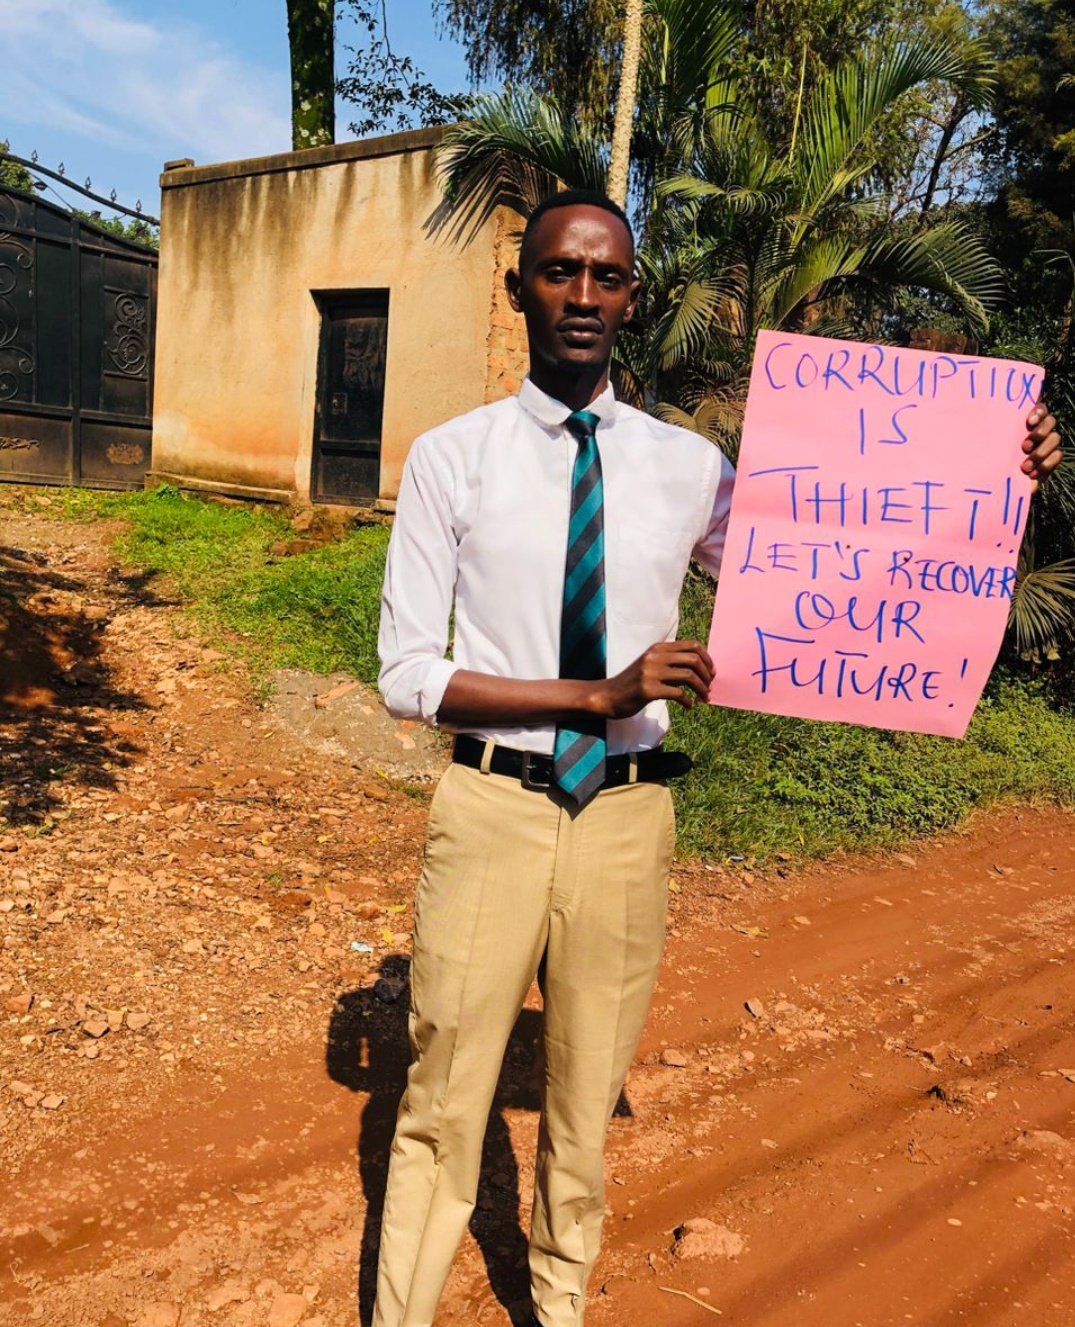 CORRUPTION
IS
THIEFT!!
LET'S RECOVER
OUR
FUTURE!